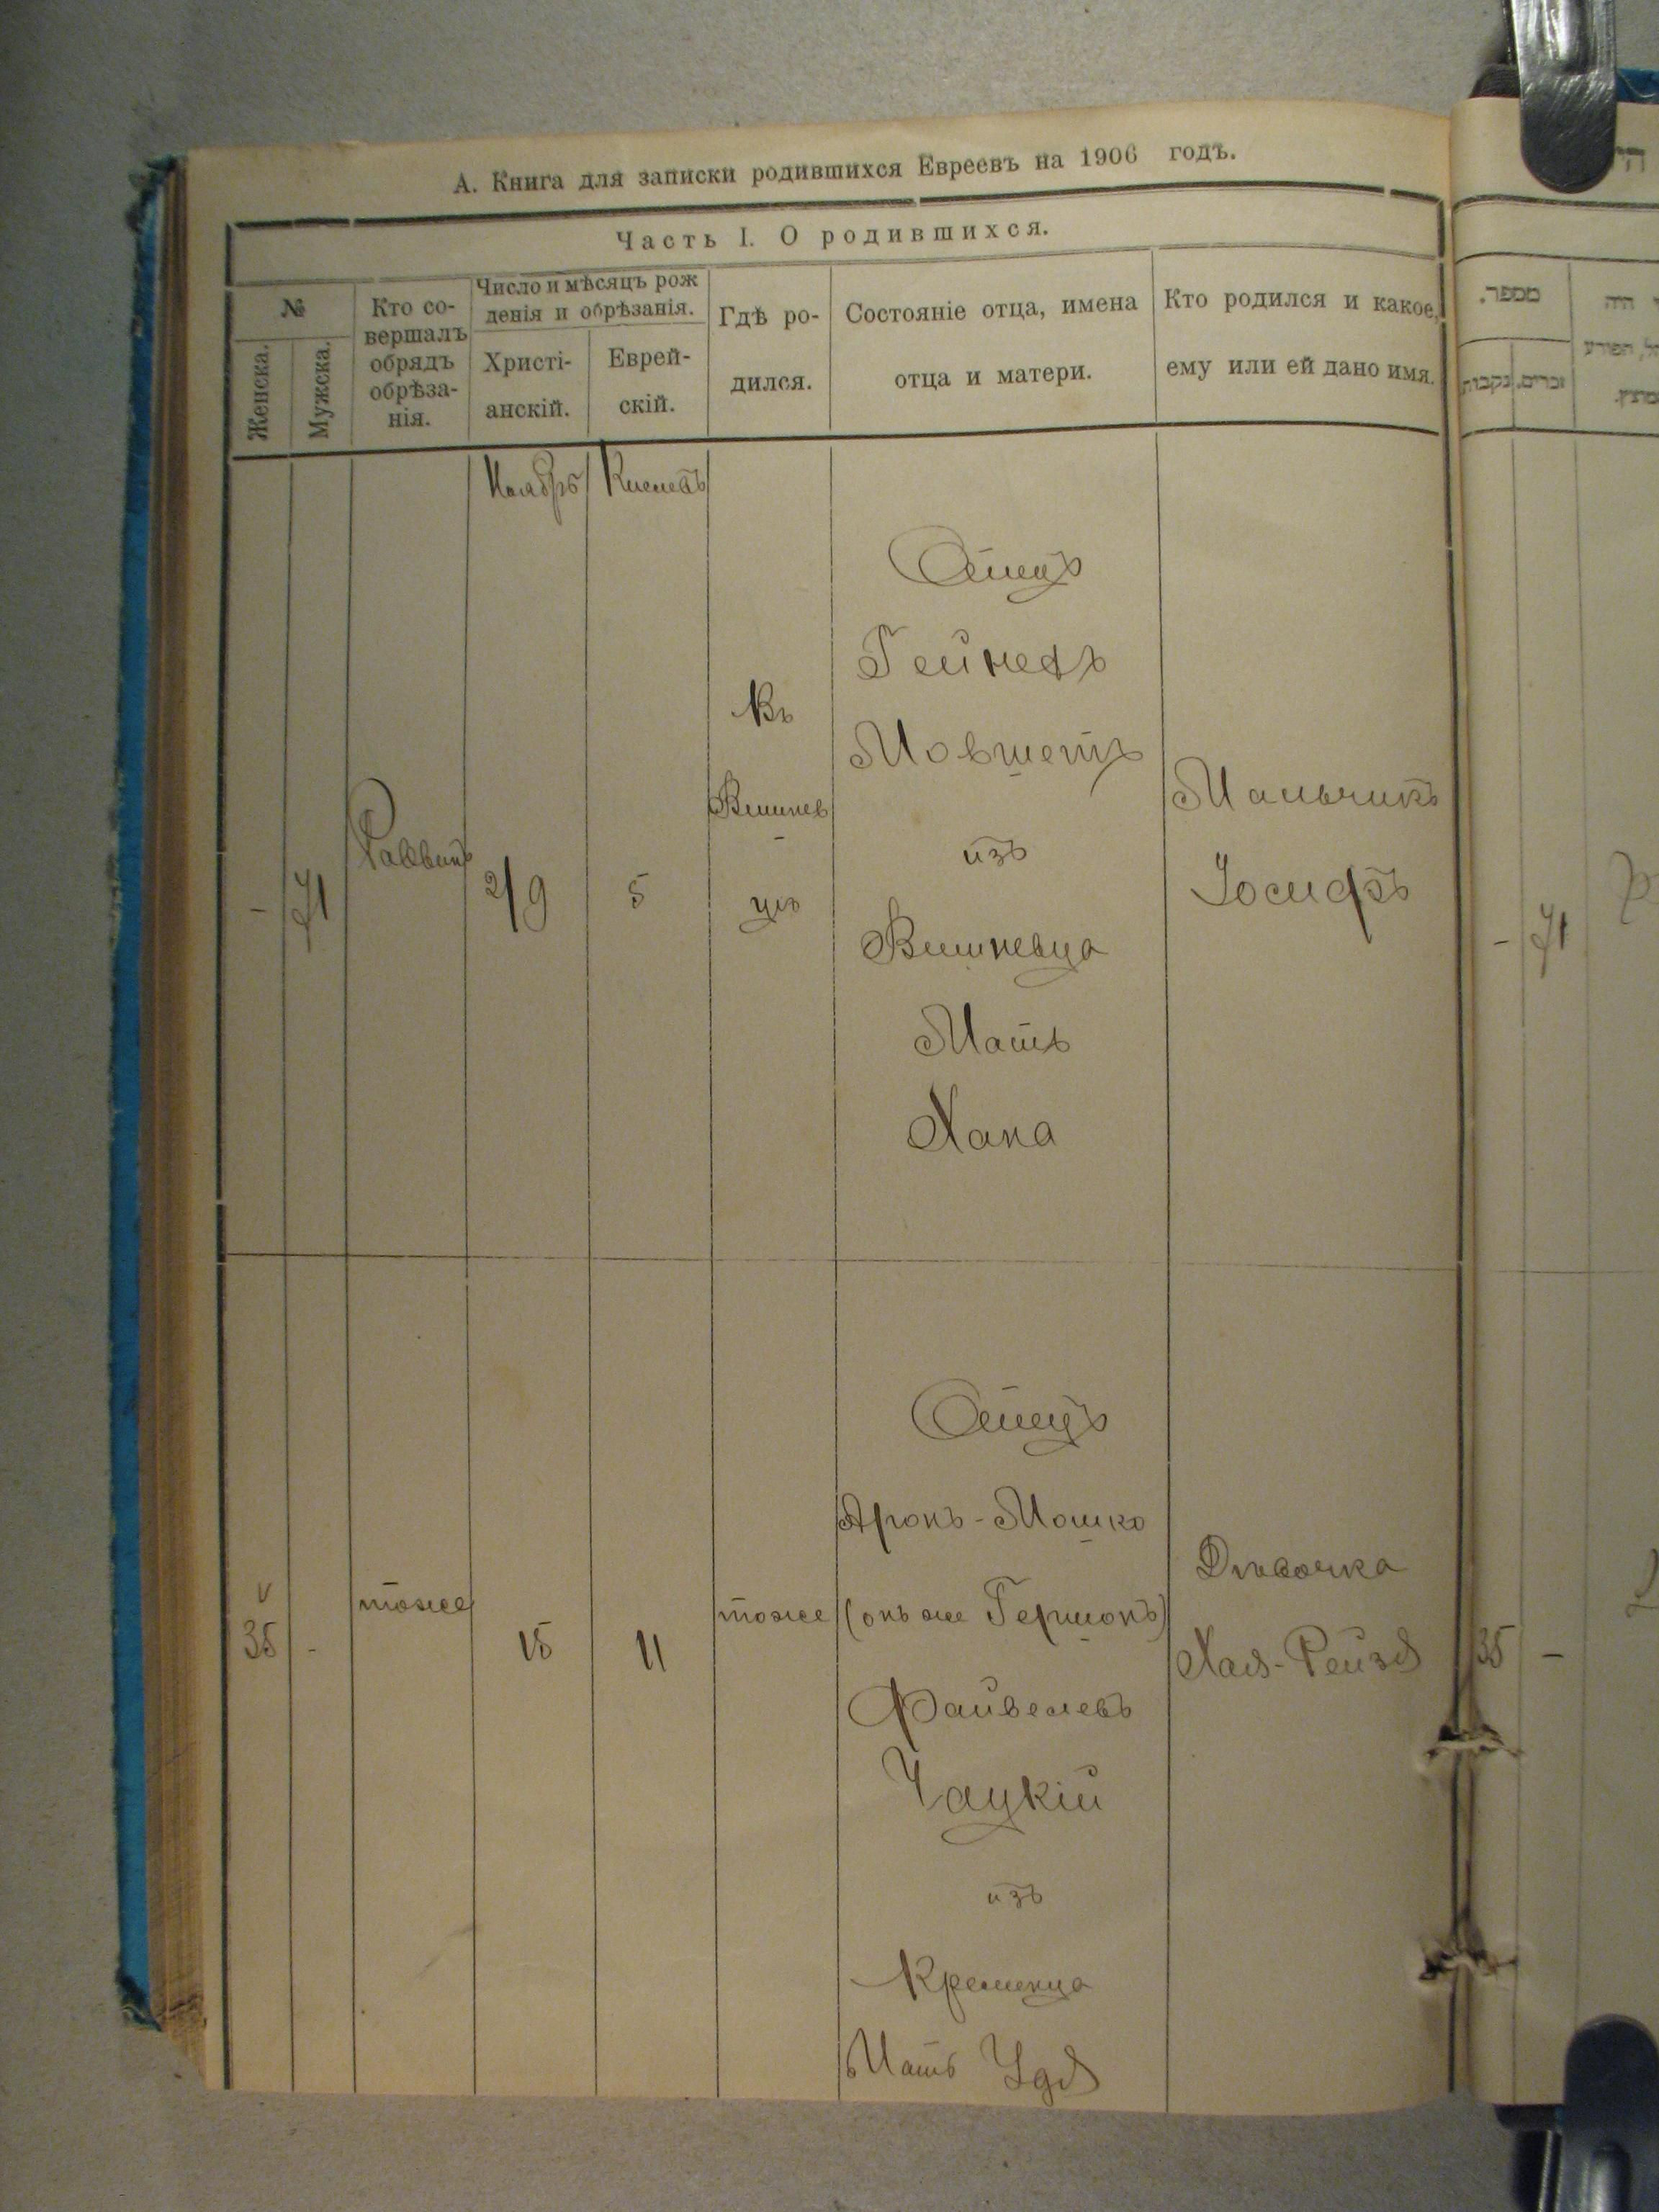 А. Книга для записки родившихся Евреевъ на 1906 годъ.
Часть I. О родившихся.
№
Женска.
Мужска.
Кто со-
вершалъ
обрядъ
обрѣза-
нія.
Число и мѣсяцъ рож
денія и обрѣзанія.
Христі-
анскій.
Еврей-
скій.
Гдѣ ро-
дился.
Состояніе отца, имена
отца и матери.
Кто родился и какое,
ему или ей дано имя.
מספר.
זכרים.
נקבות
Ноябрь
Кислевъ
- 71
Раввинъ
2/9
5
Въ
Вишнев
-
цѣ
Отецъ
Мовшетъ
изъ
Вишневца
Мать
Хана
Мальчикъ
Іосифъ
- 71
v
35 -
тоже
15
11
тоже
Отецъ
Аронъ-Мошко
(онъ же Гершонъ)
Файвелевъ
Чацкій
изъ
Кременца
Мать Удя
Дѣвочка
Хая-Рейзя
35 -